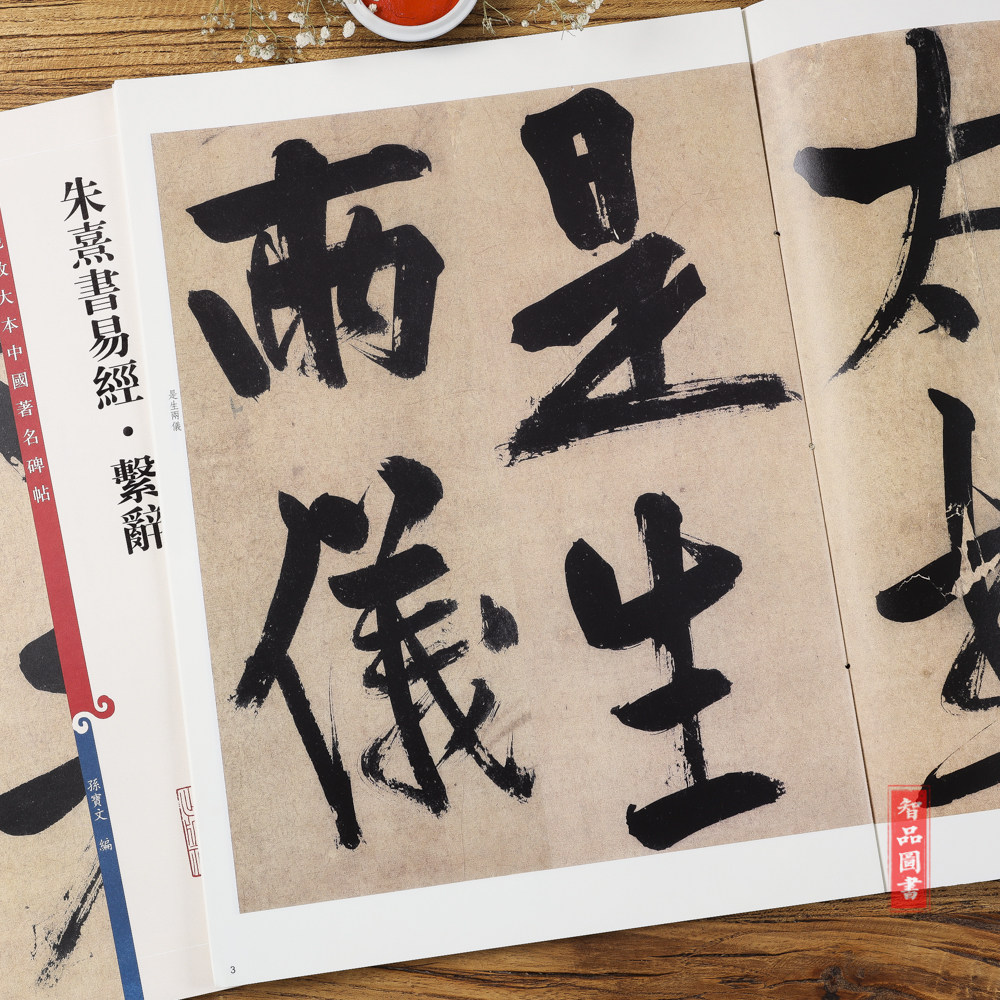 朱熹書易經·繫辭
放大本中國著名碑帖
孫寶文 編
是生兩儀
是生
兩儀
太
3
智品圖書